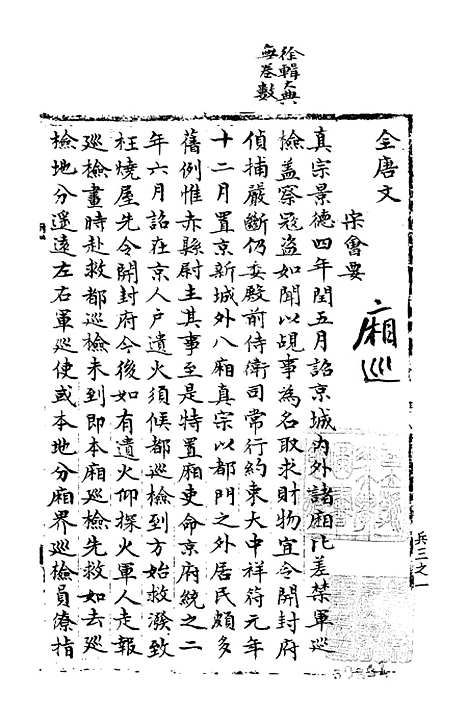 徐輯大典
無卷數
全唐文
宋會要
廂巡
真宗景德四年閏五月詔京城內外諸廂比差禁軍巡
檢盖察寇盗如聞以覘事為名取求財物宜令開封府
偵捕嚴斷仍委殿前侍衛司常行約束大中祥符元年
十二月置京新城外八廂真宗以都門之外居民頗多
舊例惟赤縣尉主其事至是特置廂吏命京府統之二
年六月詔在京人户遺火須候都巡檢到方始救潑致
枉燒屋先令開封府今後如有遺火仰探火軍人走報
巡檢畫時赴救都巡檢未到即本廂巡檢先救如去巡
檢地分遥遠左右軍巡使或本地分廂界巡檢員僚指
兵三之一